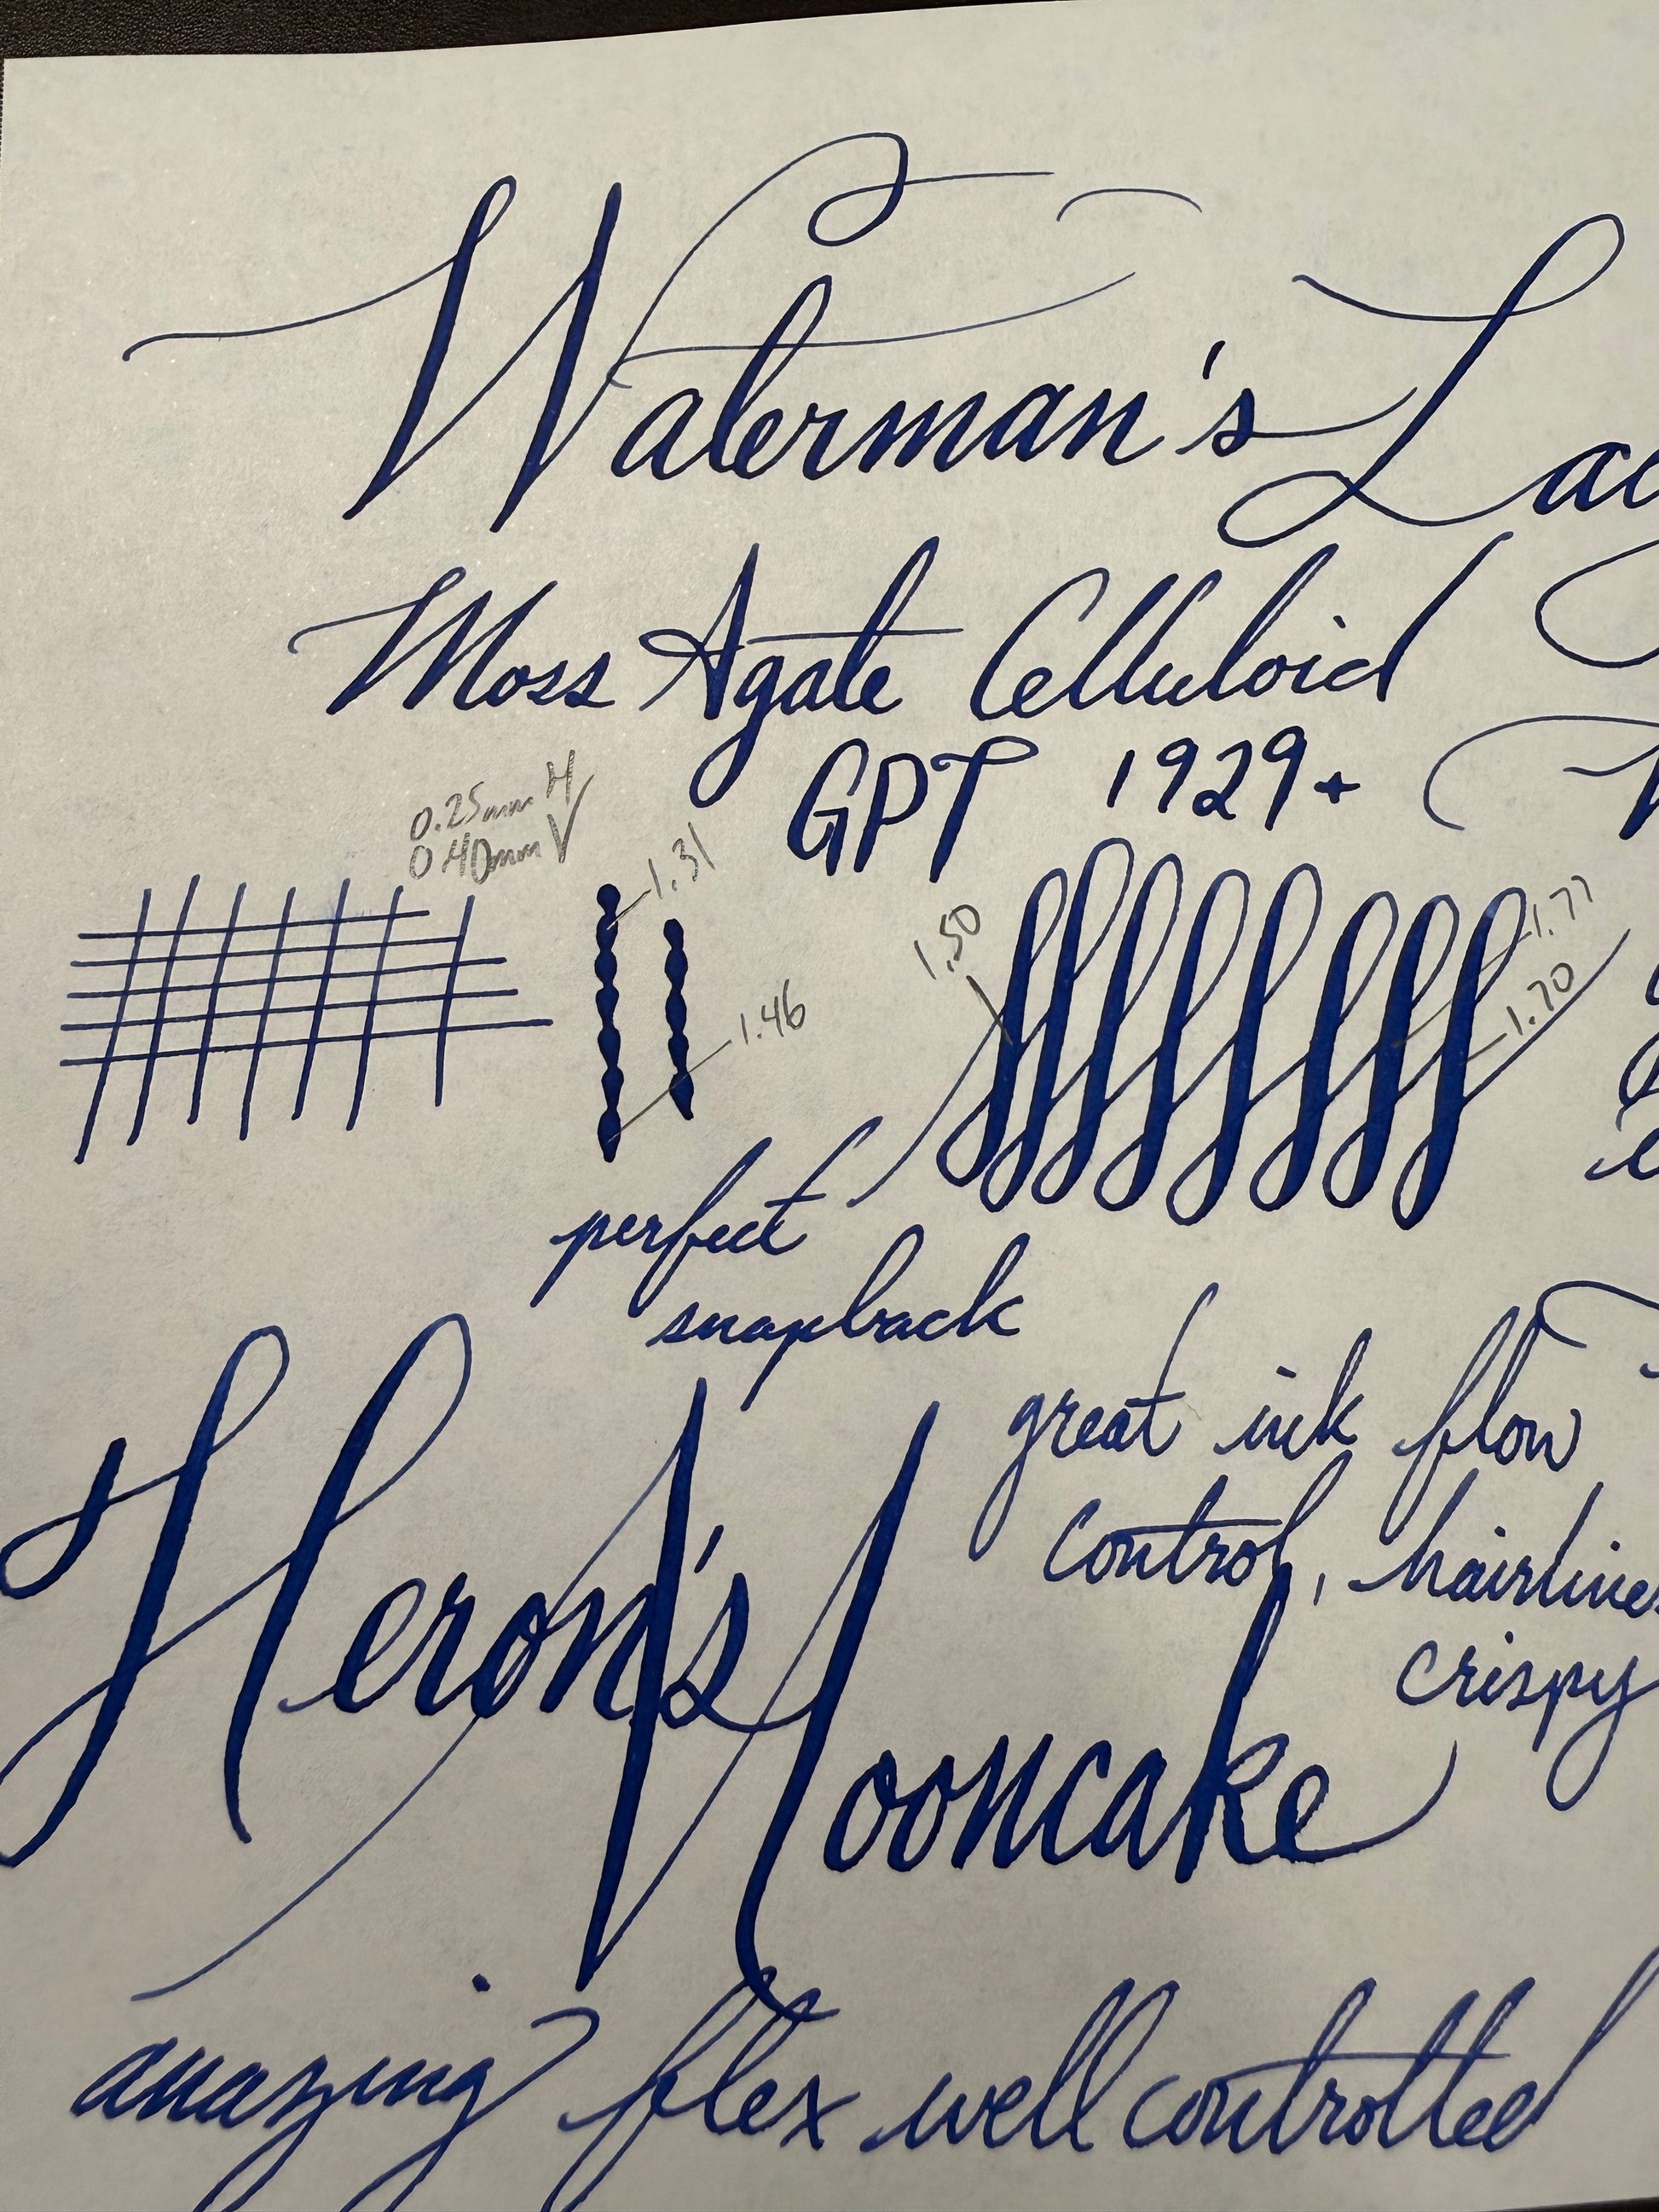 Waterman's La
Moss Agate Celluloid
GPT 1929+
0.25mm H
0.40mm V
1.31
1.46
1.50
1.77
1.70
perfect
snapback
great ink flow
control, hairlines
crispy
Heron's
Mooncake
amazing flex well controlled